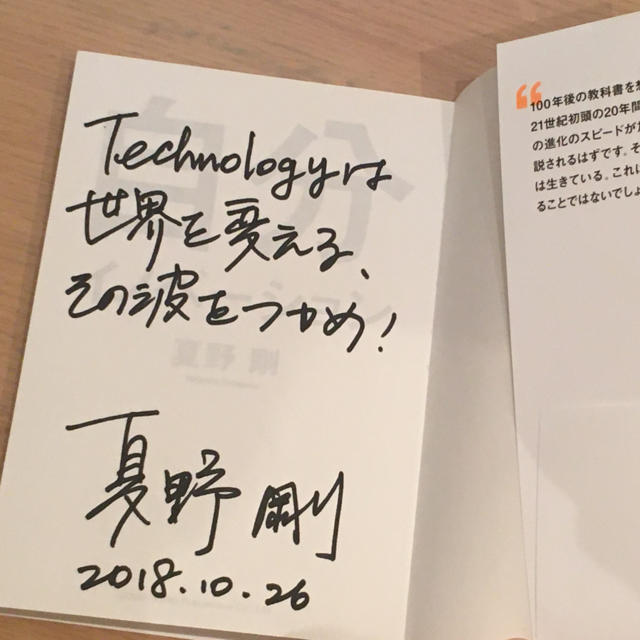 Technologyは
世界を変える、
その波をつかめ!
夏野 剛
2018.10.26
自分
夏野 剛
100年後の教科書を
21世紀初頭の20年間
の進化のスピードが
説されるはずです。そ
は生きている。これに
ることではないでしょ